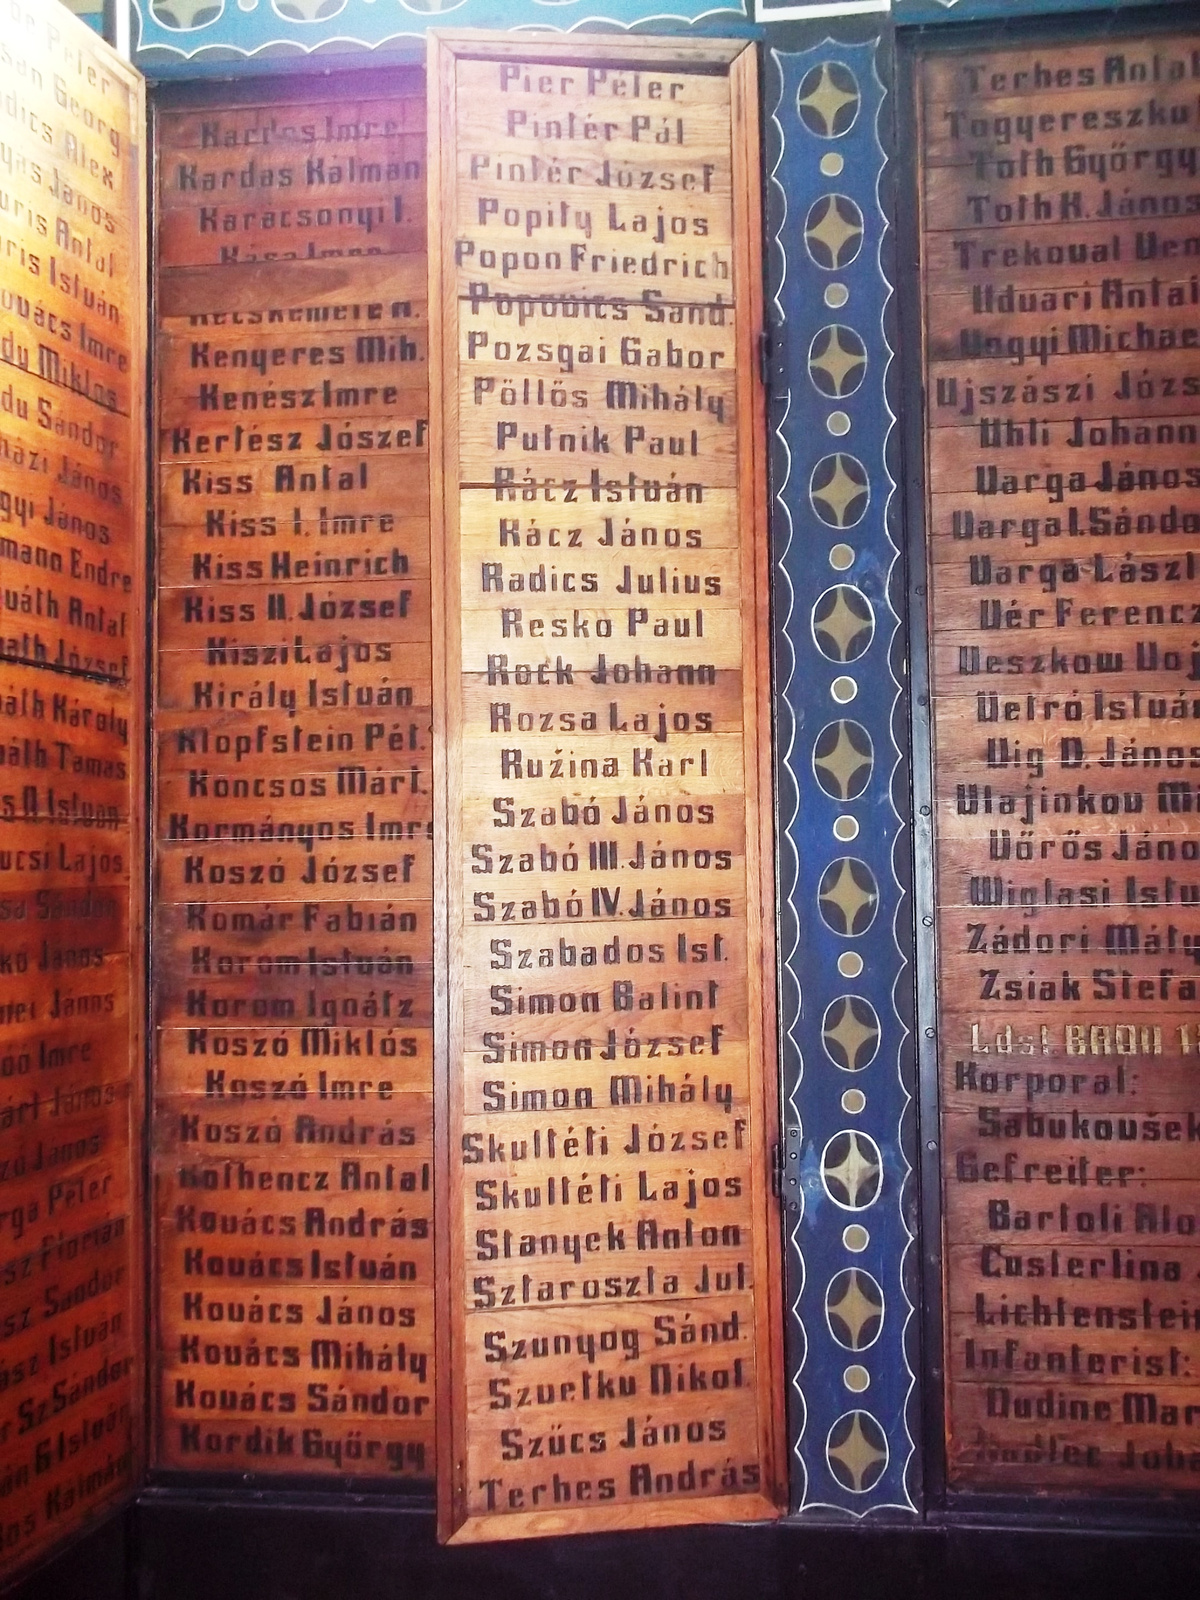 Péter
Georg
Alex
János
Antal
István
Kovács Imre
Miklos
Sándor
János
János
Endre
Antal
József
Károly
Tamas
István
Lajos
Sándor
János
János
Imre
János
János
Péter
Florián
Sándor
István
Sz Sándor
G István
Kálmán
Kardos Imre
Kardas Kálman
Karácsonyi I.
Kása Imre
Kecskemeti A.
Kenyeres Mih.
Kenész Imre
Kertész Jószef
Kiss Antal
Kiss I. Imre
Kiss Heinrich
Kiss II. József
Kiszi Lajos
Király István
Klopfstein Pét.
Koncsos Márt.
Kormányos Imre
Koszó József
Komár Fabián
Korom István
Korom Ignátz
Koszó Miklós
Koszó Imre
Koszó András
Kothencz Antal
Kovács András
Kovács István
Kovács János
Kovács Mihály
Kovács Sándor
Kordik György
Pier Péter
Pintér Pál
Pintér József
Popity Lajos
Popon Friedrich
Popovics Sand.
Pozsgai Gabor
Pöllös Mihály
Putnik Paul
Rácz István
Rácz János
Radics Julius
Resko Paul
Rock Johann
Rozsa Lajos
Ružina Karl
Szabó János
Szabó III. János
Szabó IV. János
Szabados Ist.
Simon Balint
Simon József
Simon Mihály
Skultéti József
Skultéti Lajos
Stanyek Anton
Sztaroszta Jul.
Szunyog Sánd.
Szvetku Nikol.
Szűcs János
Terhes András
Terhes Antal
Togyereszku
Toth György
Toth K. János
Trekoval
Uduari Antal
Michae
Ujszászi Józs
Uhli Johann
Varga János
Varga I. Sándo
Varga Lászl
Vér Ferencz
Veszkow Voj
Vetró István
Vig D. János
Vlajinkov Mi
Vörös Jáno
Wiglasi Istv
Zádori Máty
Zsiak Stefa
Ldst BAON
Korporal:
Sabukoušek
Gefreiter:
Bartoli Alo
Custerlina
Lichtenstein
Infanterist:
Dudine Mar